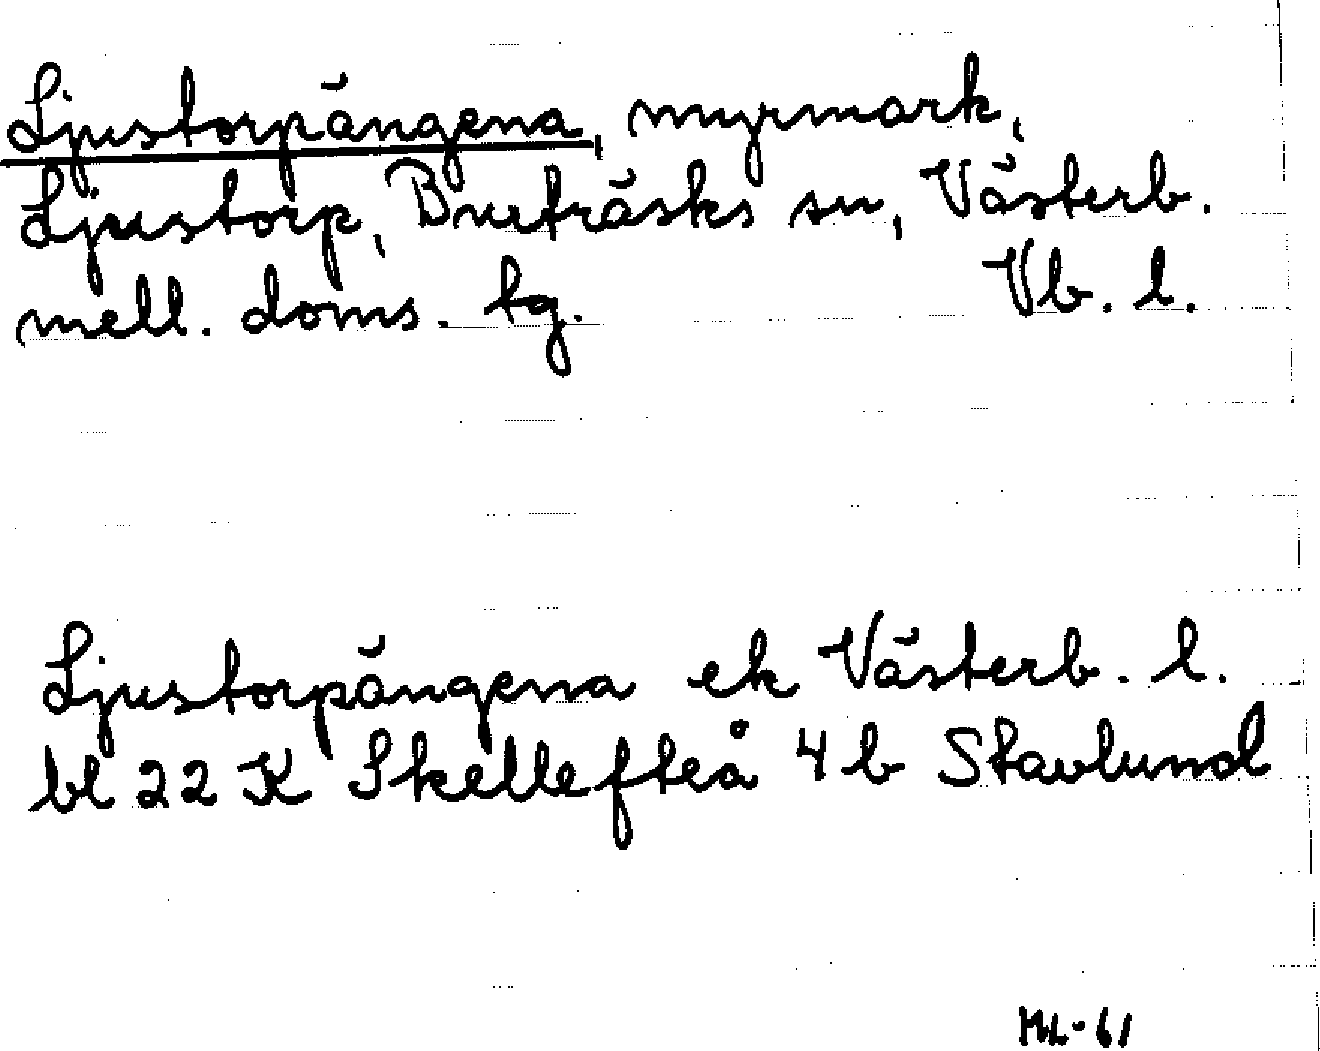 Ljustorpängena, myrmark,
Ljustorp, Burträsks sn, Västerb.
mell. doms. tg. Vb. l.
Ljustorpängena ek Västerb. l.
bl 22 K Skellefteå 4 b Stavlund
ML-61